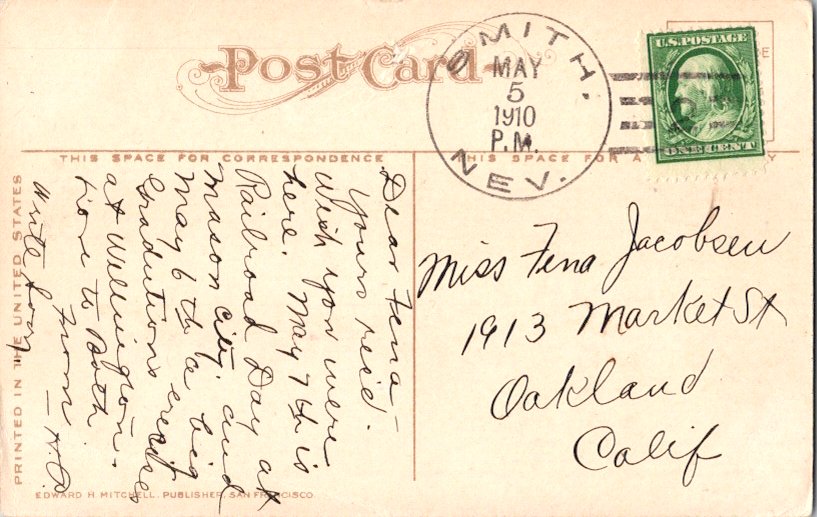 Post Card
SMITH,
MAY
5
1910
P.M.
NEV.
U.S. POSTAGE
ONE CENT
THIS SPACE FOR CORRESPONDENCE
THIS SPACE FOR A
Dear Fena—
Yours rec'd.
Wish you were
here. May 7th is
Railroad Day at
Mason City, and
May 6th a big
Graduation exercises
at Wellington.
to Both
From
— H.P.
Write soon
Miss Fena Jacobsen
1913 Market St
Oakland
Calif
PRINTED IN THE UNITED STATES
EDWARD H. MITCHELL, PUBLISHER, SAN FRANCISCO